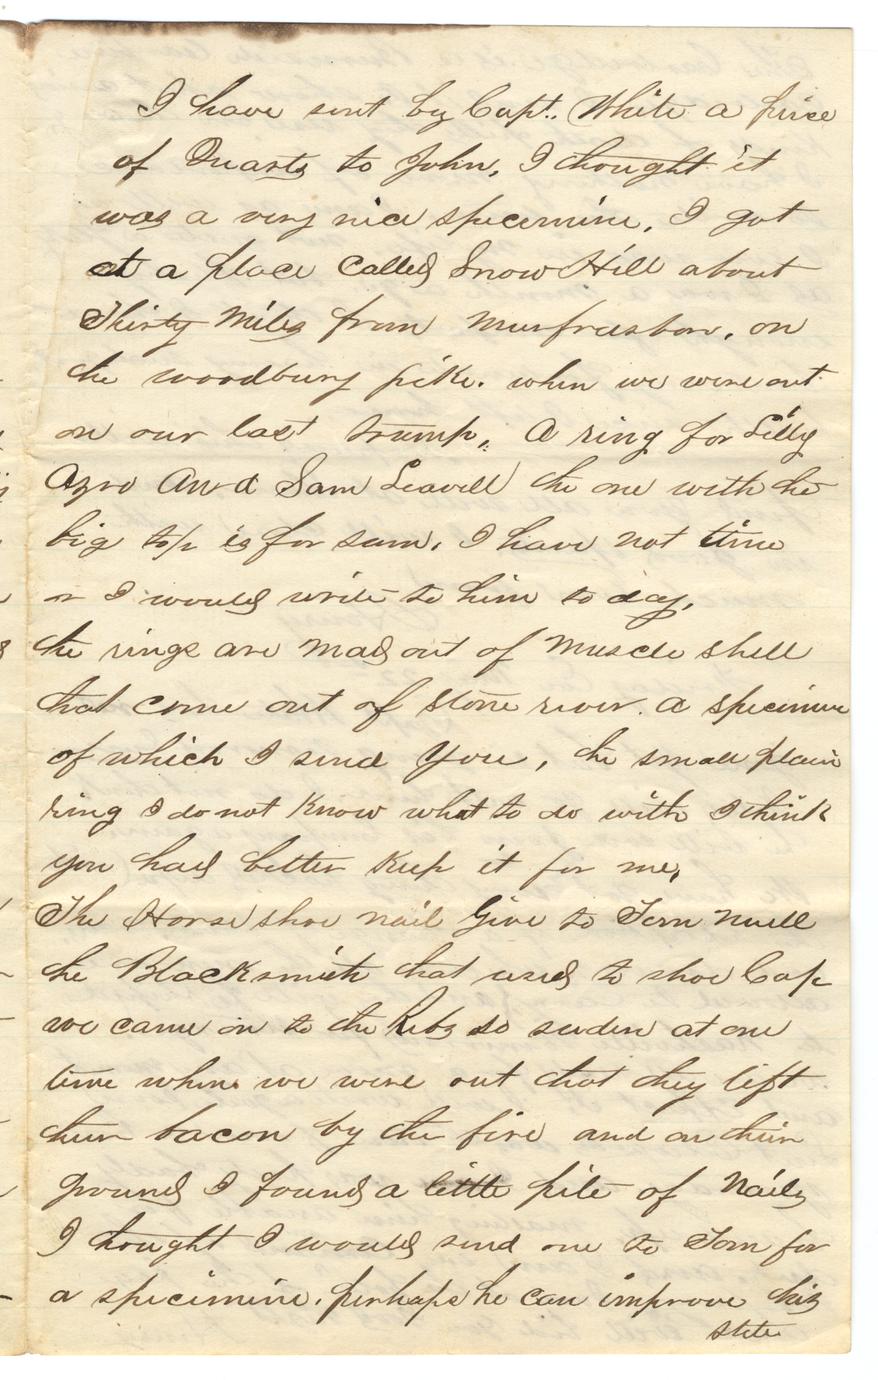 I have sent by Capt. White a piece
of Quartz to John, I thought it
was a very nice specimine, I got
at a place called Snow Hill about
Thirty Miles from Murfreesboro, on
the woodbury pike. when we were out
on our last tramp, A ring for Lilly
Azro And Sam Leavell the one with the
big top is for sam, I have not time
or I would write to him to day,
the rings are mad out of Muscle shell
that come out of Stone river. a specimine
of which I send You, the small plain
ring I do not Know what to do with I think
you had better Keep it for me,
The Horse shoe nail Give to Tom
the BlackSmith that used to shoe Cap
we came on to the Rebs so suden at one
time when we were out that they left
their bacon by the fire and on their
ground I found a little pile of Nails
I thought I would send one to Tom for
a specimine. perhaps he can improve his
stile